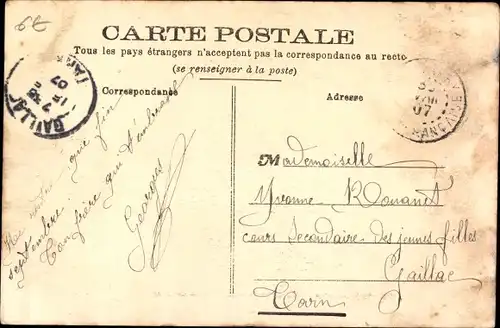 6€
CARTE POSTALE
Tous les pays étrangers n'acceptent pas la correspondance au recto
(se renseigner à la poste)
Correspondance
Adresse
GAILLAC
07
07
septembre.
Ton frère qui t'embrasse
Georges
Mademoiselle
Yvonne Rouanet
cours Secondaire des jeunes filles
Gaillac
Tarn